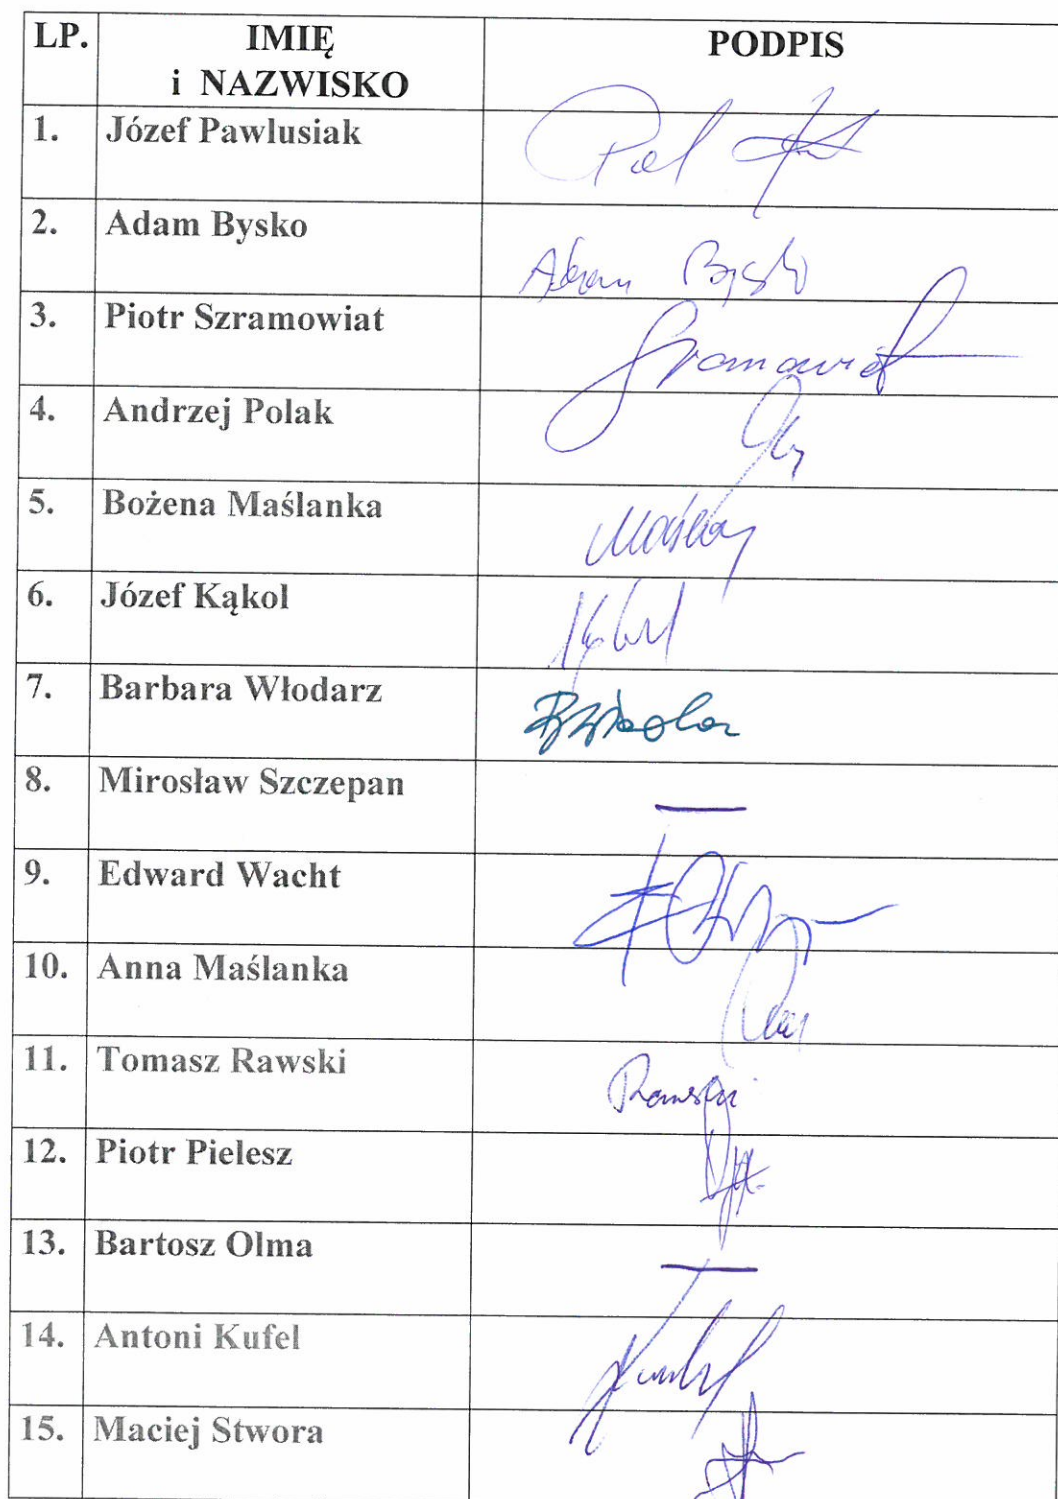 LP. IMIĘ PODPIS
i NAZWISKO
1. Józef Pawlusiak
2. Adam Bysko Adam Bysko
3. Piotr Szramowiat Szramowiat
4. Andrzej Polak
5. Bożena Maślanka
6. Józef Kąkol
7. Barbara Włodarz
8. Mirosław Szczepan —
9. Edward Wacht
10. Anna Maślanka
11. Tomasz Rawski Rawski
12. Piotr Pielesz
13. Bartosz Olma —
14. Antoni Kufel
15. Maciej Stwora